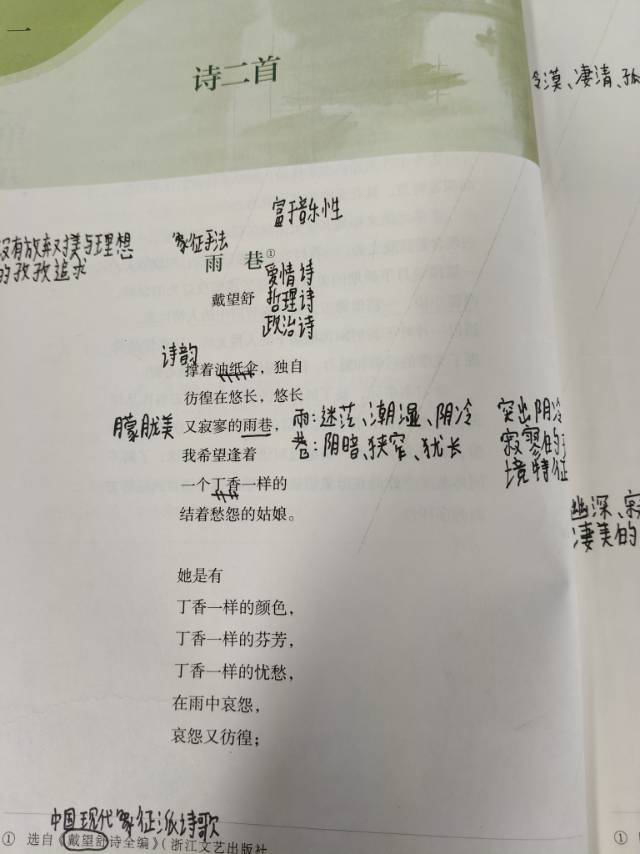 一
诗二首
冷漠、凄清、孤
富于音乐性
没有放弃对美与理想
的孜孜追求
象征手法
雨 巷①
爱情诗
戴望舒 哲理诗
政治诗
诗韵
撑着油纸伞，独自
彷徨在悠长，悠长
朦胧美 又寂寥的雨巷，
雨：迷茫、潮湿、阴冷
巷：阴暗、狭窄、犹长
突出阴冷
寂寥的
境特征
我希望逢着
一个丁香一样的
结着愁怨的姑娘。
幽深、寂
凄美的
她是有
丁香一样的颜色，
丁香一样的芬芳，
丁香一样的忧愁，
在雨中哀怨，
哀怨又彷徨；
中国现代象征派诗歌
① 选自《戴望舒诗全编》（浙江文艺出版社
①